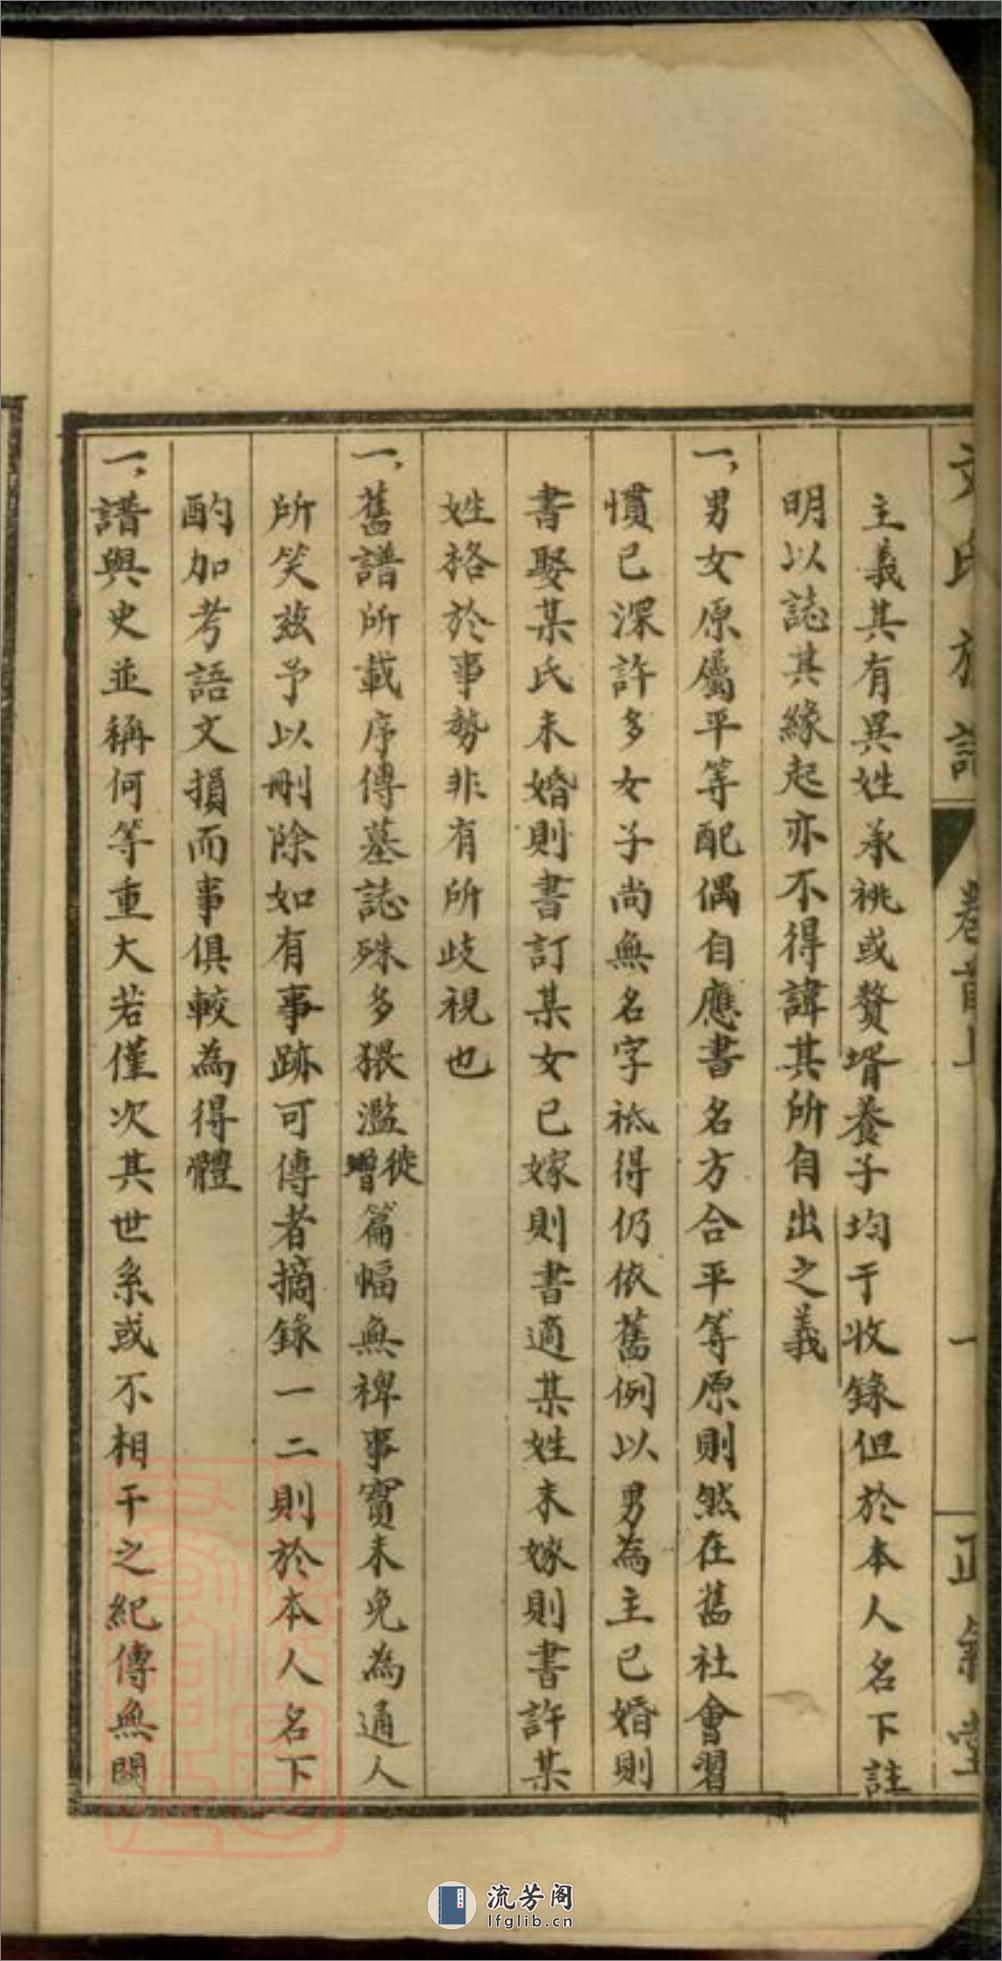 文氏族譜 卷首上 一 正氣堂
主義其有異姓承祧或贅壻養子均于收錄但於本人名下註
明以誌其緣起亦不得諱其所自出之義
一,男女原屬平等配偶自應書名方合平等原則然在舊社會習
慣已深許多女子尚無名字祗得仍依舊例以男為主已婚則
書娶某氏未婚則書訂某女已嫁則書適某姓未嫁則書許某
姓格於事勢非有所歧視也
一,舊譜所載序傳墓誌殊多猥濫徙增篇幅無裨事實未免為通人
所笑茲予以刪除如有事跡可傳者摘錄一二則於本人名下
酌加考語文損而事俱較為得體
一,譜與史並稱何等重大若僅次其世系或不相干之紀傳無關
流芳阁
lfglib.cn